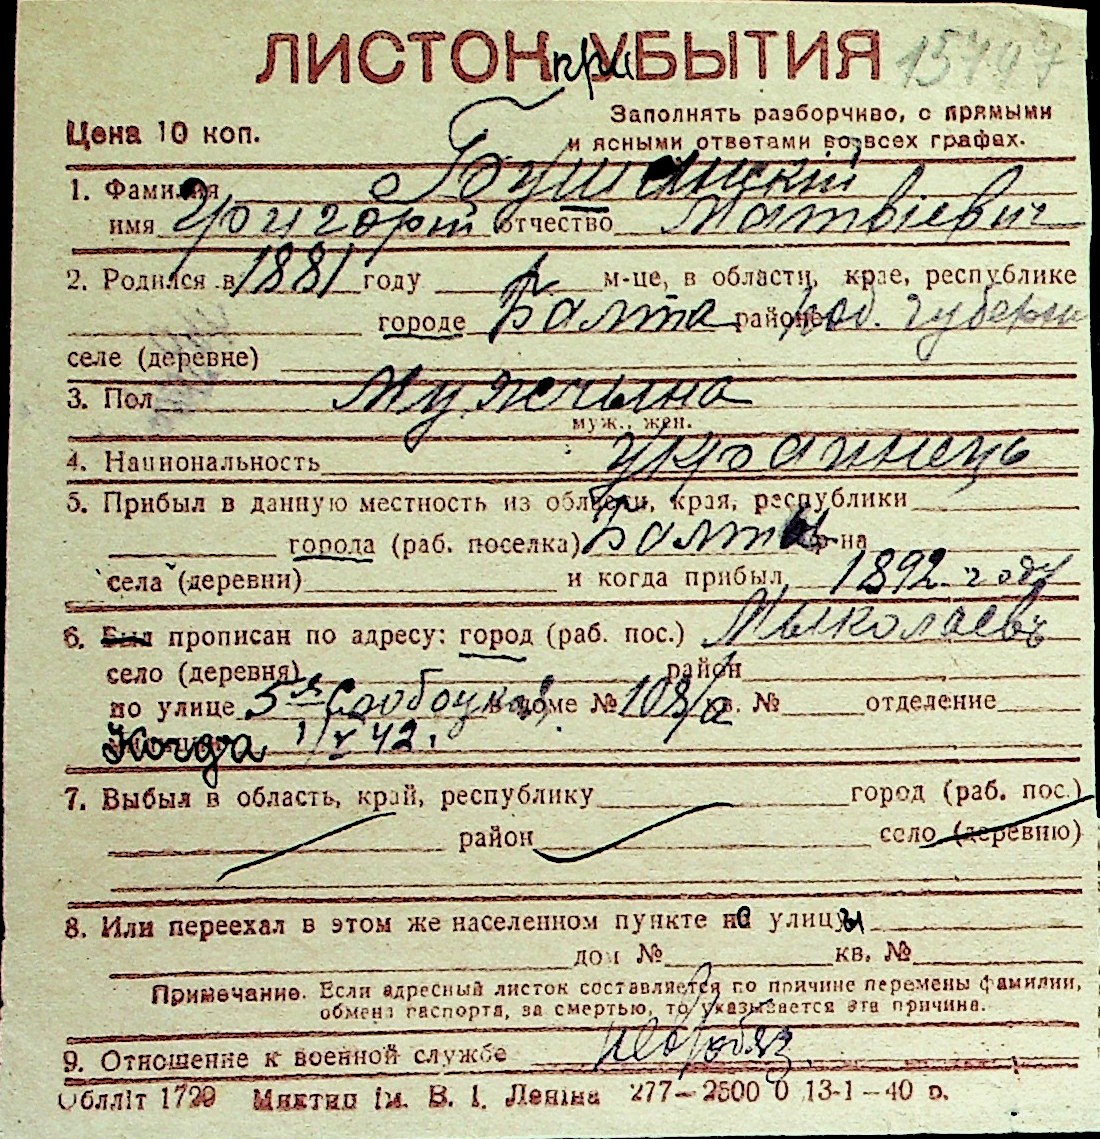 ЛИСТОК при УБЫТИЯ 15797
Цена 10 коп. Заполнять разборчиво, с прямыми
и ясными ответами во всех графах.
1. Фамилия Бушанский
имя Григорій отчество Матвіевич
2. Родился в 1881 году м-це, в области, крае, республике
городе Балта районе Под. губерни
селе (деревне)
3. Пол Мужчына
муж., жен.
4. Национальность украинець
5. Прибыл в данную местность из области, края, республики
города (раб. поселка) Балты р-на
села (деревни) и когда прибыл 1892 году
6. Был прописан по адресу: город (раб. пос.) Мыколаевъ
село (деревня) район
по улице 5ая Слобоцкая, в доме № 103/а кв. № отделение
Когда 1/X 42.
7. Выбыл в область, край, республику город (раб. пос.)
район село (деревню)
8. Или переехал в этом же населенном пункте на улицы
дом № кв. №
Примечание. Если адресный листок составляется по причине перемены фамилии,
обмена паспорта, за смертью, то указывается эта причина.
9. Отношение к военной службе
Облліт 1729 Миктип ім. В. І. Леніна 277—2500 0 13-1—40 р.